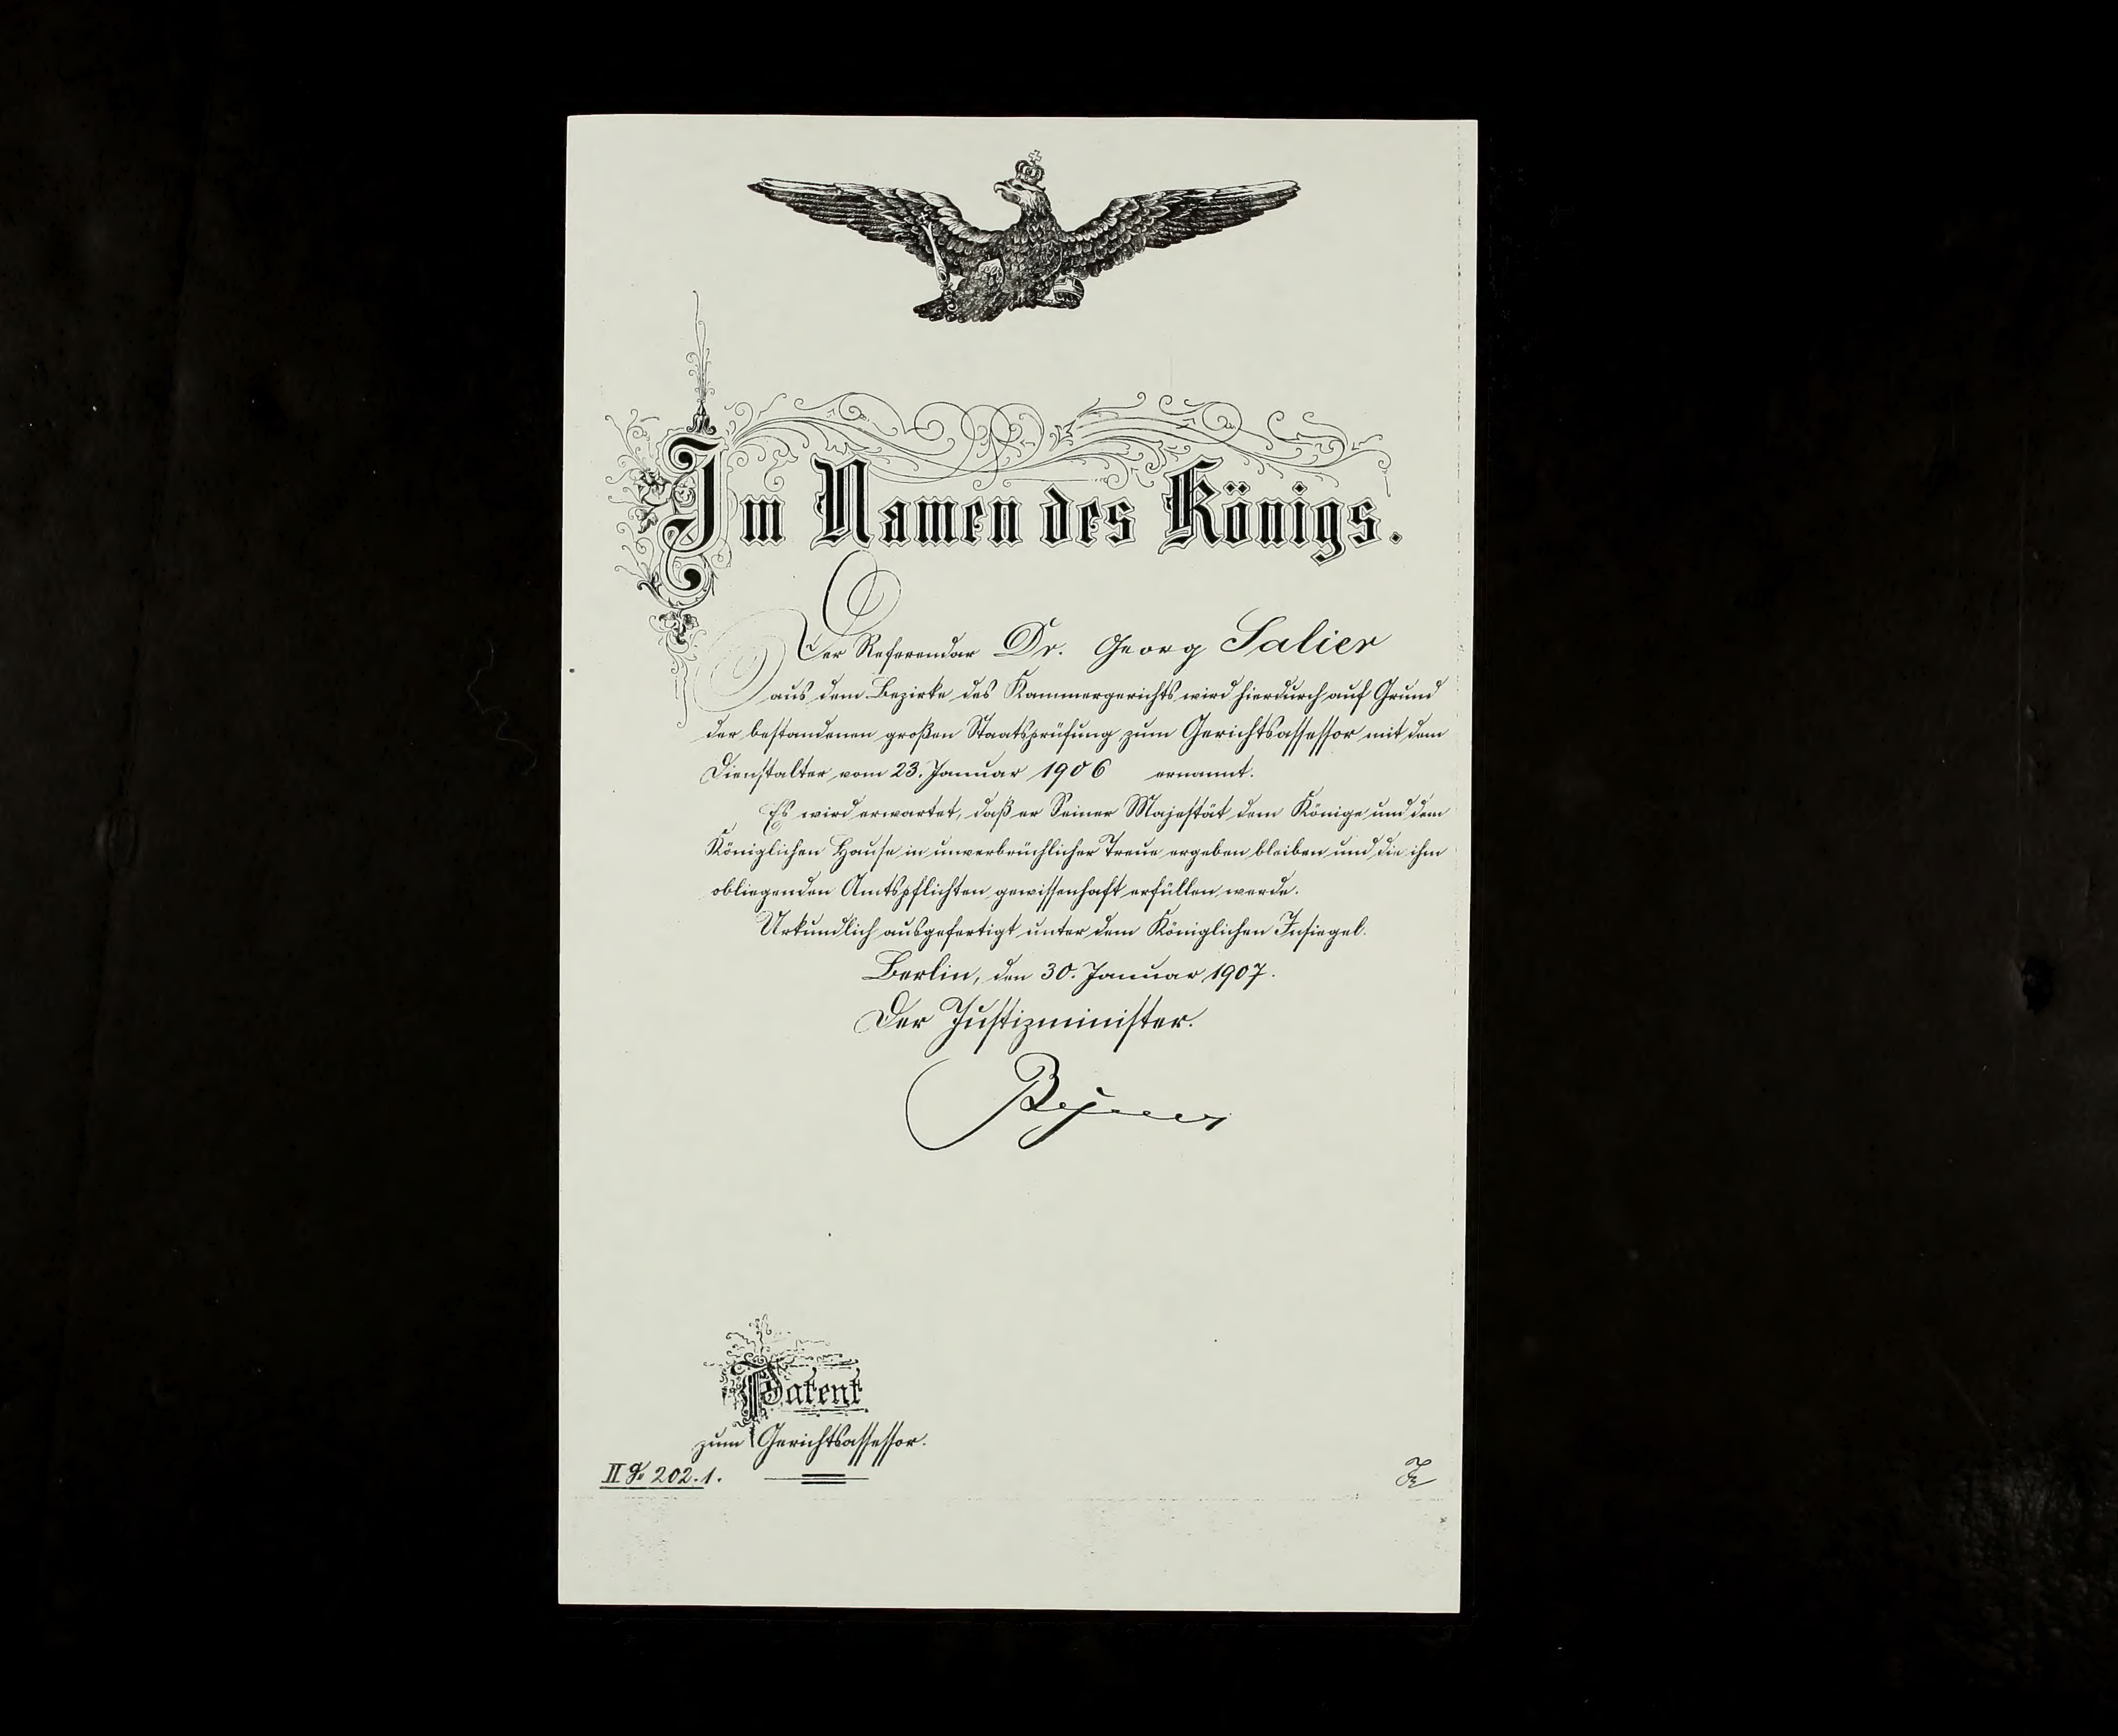 Im Namen des Königs.
Der Referendar Dr. Georg Salier
aus dem Bezirke des Kammergerichts wird hierdurch auf Grund
der bestandenen großen Staatsprüfung zum Gerichtsassessor mit dem
Dienstalter vom 23. Januar 1906 ernannt.
Es wird erwartet, daß er Seiner Majestät dem Könige und dem
Königlichen Hause in unverbrüchlicher Treue ergeben bleiben und die ihm
obliegenden Amtspflichten gewissenhaft erfüllen werde.
Urkundlich ausgefertigt unter dem Königlichen Insiegel.
Berlin, den 30. Januar 1907.
Der Justizminister.
Patent
zum Gerichtsassessor.
II 202.1.